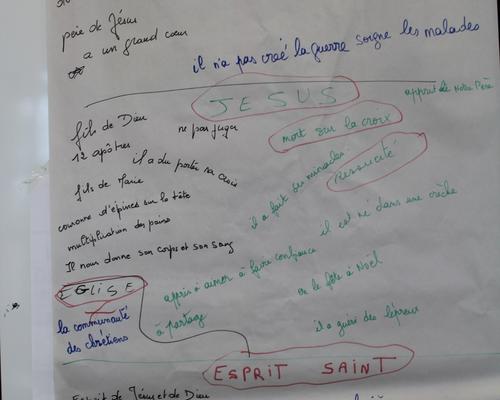 père de Jésus
a un grand coeur
il n'a pas créé la guerre soigne les malades
JESUS
fils de Dieu
ne pas juger
mort sur la croix
12 apôtres
il a du porter sa croix
Ressucité
fils de Marie
il a fait des miracles
couronne d'épines sur la tête
il est né dans une crèche
multiplication des pains
Il nous donne son corps et son sang
appris à aimer à faire confiance
on le fête à Noël
EGLISE
à partager
la communauté
des chrétiens
il a guéri des lépreux
ESPRIT SAINT
Esprit de Jésus et de Dieu